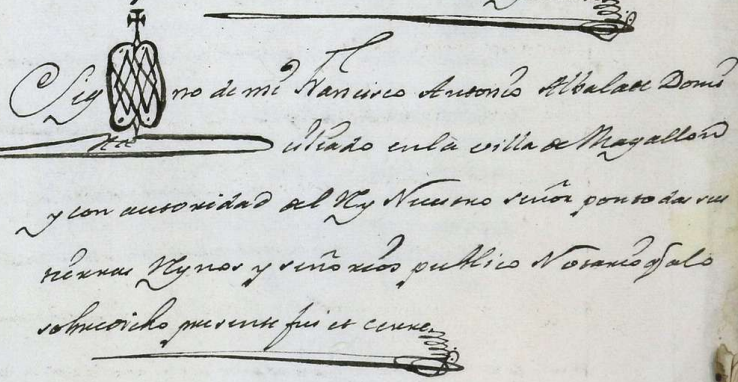 Sig no de mi Francisco Antonio Albalate Domi
ciliado en la villa de Magallon
y con autoridad del Rey Nuestro señor por todas sus
tierras Reynos y señorios publico Notario q̃ a lo
sobredicho presente fui et cerre